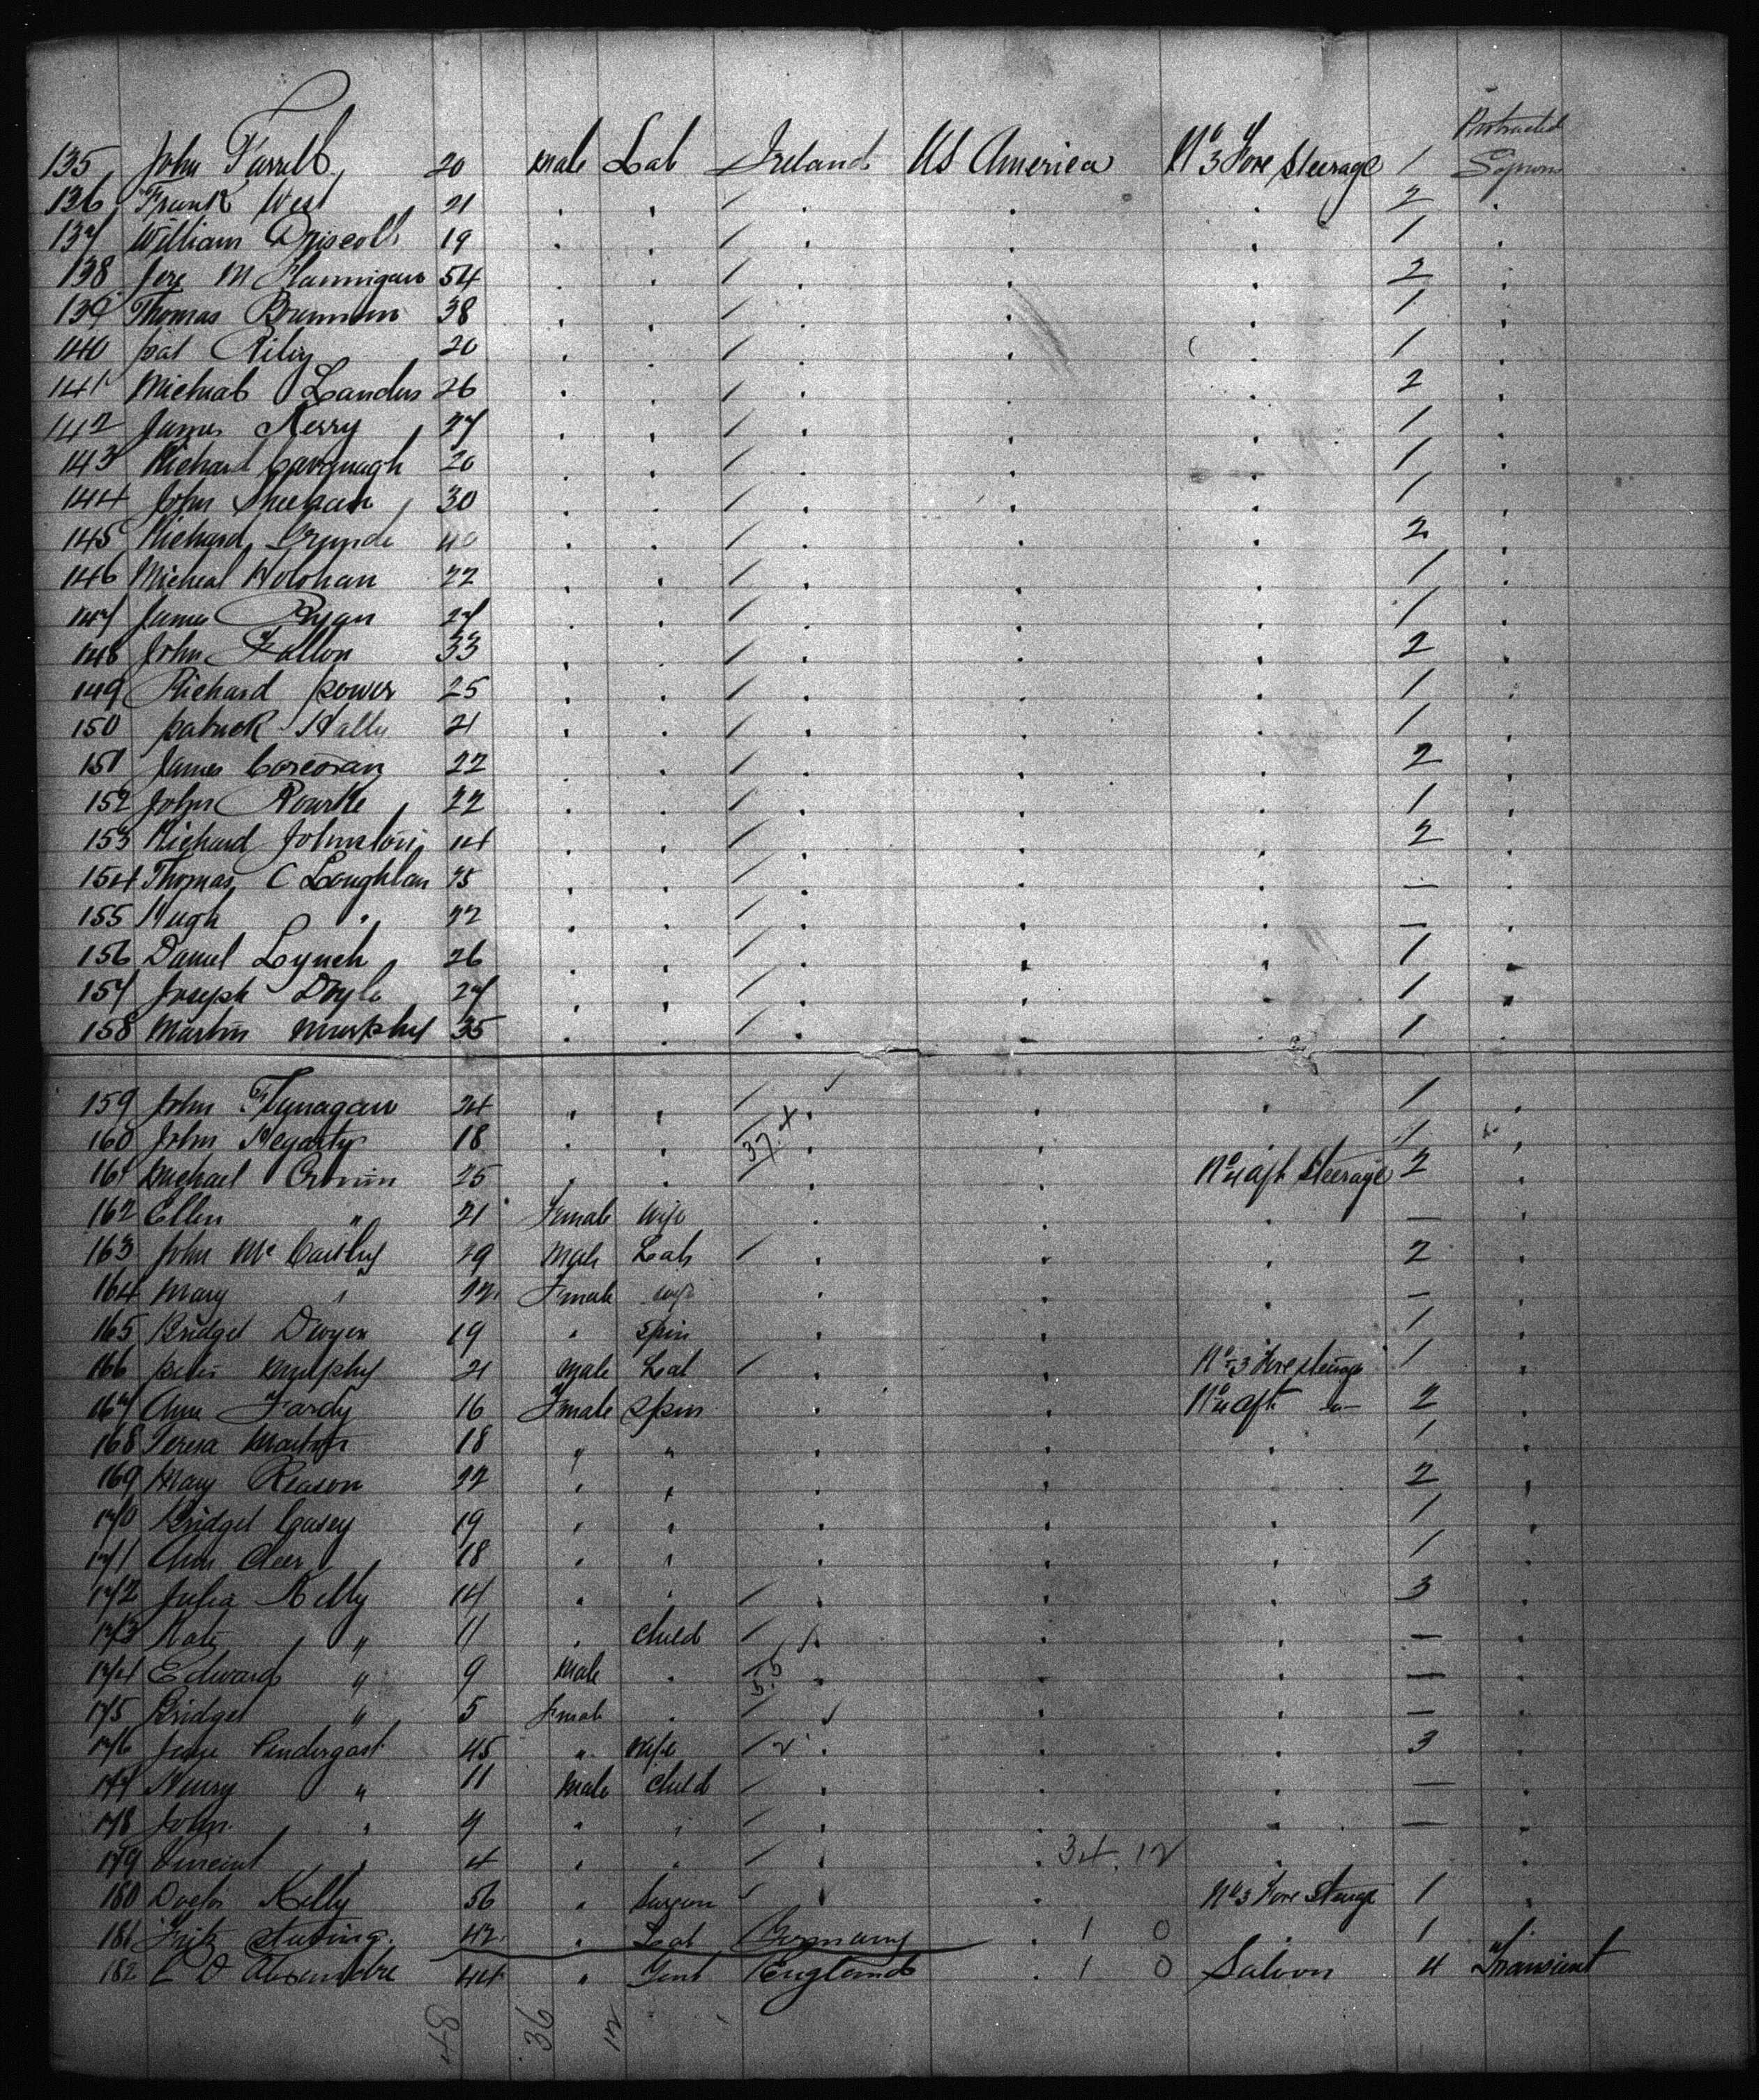 Protracted
135 John Farrell 20 Male Lab Ireland US America No 3 Fore Steerage 1 Sojourn
136 Frank West 21 . . / . . . 2 .
137 William Driscoll 19 . . / . . . 1 .
138 Jere M Flannigan 54 . . / . . . 2 .
139 Thomas 38 . . / . . . 1 .
140 Pat Riley 20 . . / . . . 1 .
141 Micheal Landers 26 . . / . . . 2 .
142 James Kerry 27 . . / . . . 1 .
143 Richard Cavanagh 20 . . / . . . 1 .
144 John Sheehan 30 . . / . . . 1 .
145 Richard 40 . . / . . . 2 .
146 Micheal Holohan 22 . . / . . . 1 .
147 James Ryan 27 . . / . . . 1 .
148 John Fallon 33 . . / . . . 2 .
149 Richard Power 25 . . / . . . 1 .
150 Patrick Hally 21 . . / . . . 1 .
151 James Corcoran 22 . . / . . . 2 .
152 John Rourke 22 . . / . . . 1 .
153 Richard Johnston 14 . . / . . . 2 .
154 Thomas C Loughlan 25 . . / . . . — .
155 Hugh " 22 . . / . . . — .
156 Daniel Lynch 26 . . / . . . 1 .
157 Joseph Doyle 27 . . / . . . 1 .
158 Martin Murphy 35 . . / . . . 1 .
159 John Flynagan 24 . . / . . . 1 .
160 John Hegarty 18 . . / 37.4 . . . 1 .
161 Michael Cronin 25 . . / . . No 4 Aft Steerage 2 .
162 Ellen " 21 Female Wife . . . — .
163 John McCarthy 29 Male Lab / . . . 2 .
164 Mary " 22 Female Wife . . . —
165 Bridget Dwyer 19 " Spin . . . 1
166 Peter Murphy 21 Male Lab / . . No 3 Fore Steerage 1 .
167 Ann Fardy 16 Female Spin . . No 4 Aft -"- 2 .
168 Teresa Martin 18 " " . . . 1 .
169 Mary Reason 22 " " . . . 2 .
170 Bridget Casey 19 " " . . . 1 .
171 Ann Cleer 18 " " . . . 1 .
172 Julia Kelly 14 " " / . . . 3 .
173 Kate " 11 " Child / . . . — .
174 Edward " 9 Male . / . . . — .
175 Bridget " 5 Female . / . . . — .
176 Jane Pendergast 45 " Wife / 2 . . . 3 .
177 Henry " 11 Male Child / . . . — .
178 John " 9 " " / . . . — .
179 Vinceint " 4 " " / . . 34.12 . .
180 Doctor Kelly 56 " Surgeon / . . No 3 Fore Steerage 1 .
181 Fritz 42 " Lab Germany . 1 0 . 1
182 42 44 " Gent England . 1 0 Saloon 4 Transient
48 36 12